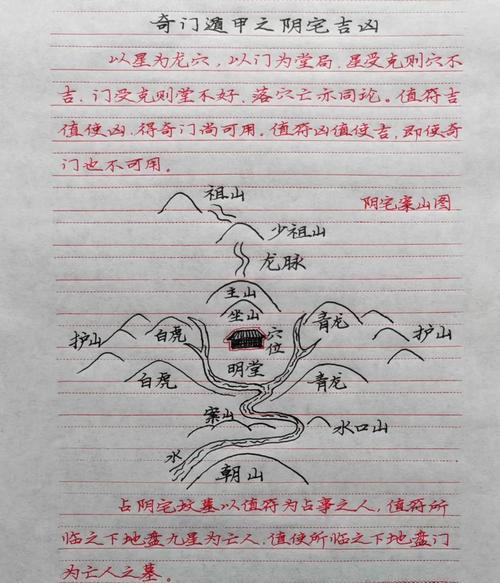 奇门遁甲之阴宅吉凶
以星为龙穴，以门为堂局，星受克则穴不
吉，门受克则堂不好，落穴亡亦同论。值符吉
值使凶，得奇门尚可用。值符凶值使吉，即使奇
门也不可用。
阴宅案山图
祖山
少祖山
龙脉
主山
坐山
护山
白虎
穴位
青龙
护山
明堂
白虎
青龙
案山
水口山
水
朝山
占阴宅坟墓以值符为占事之人，值符所
临之下地盘九星为亡人，值使所临之下地盘门
为亡人之墓。